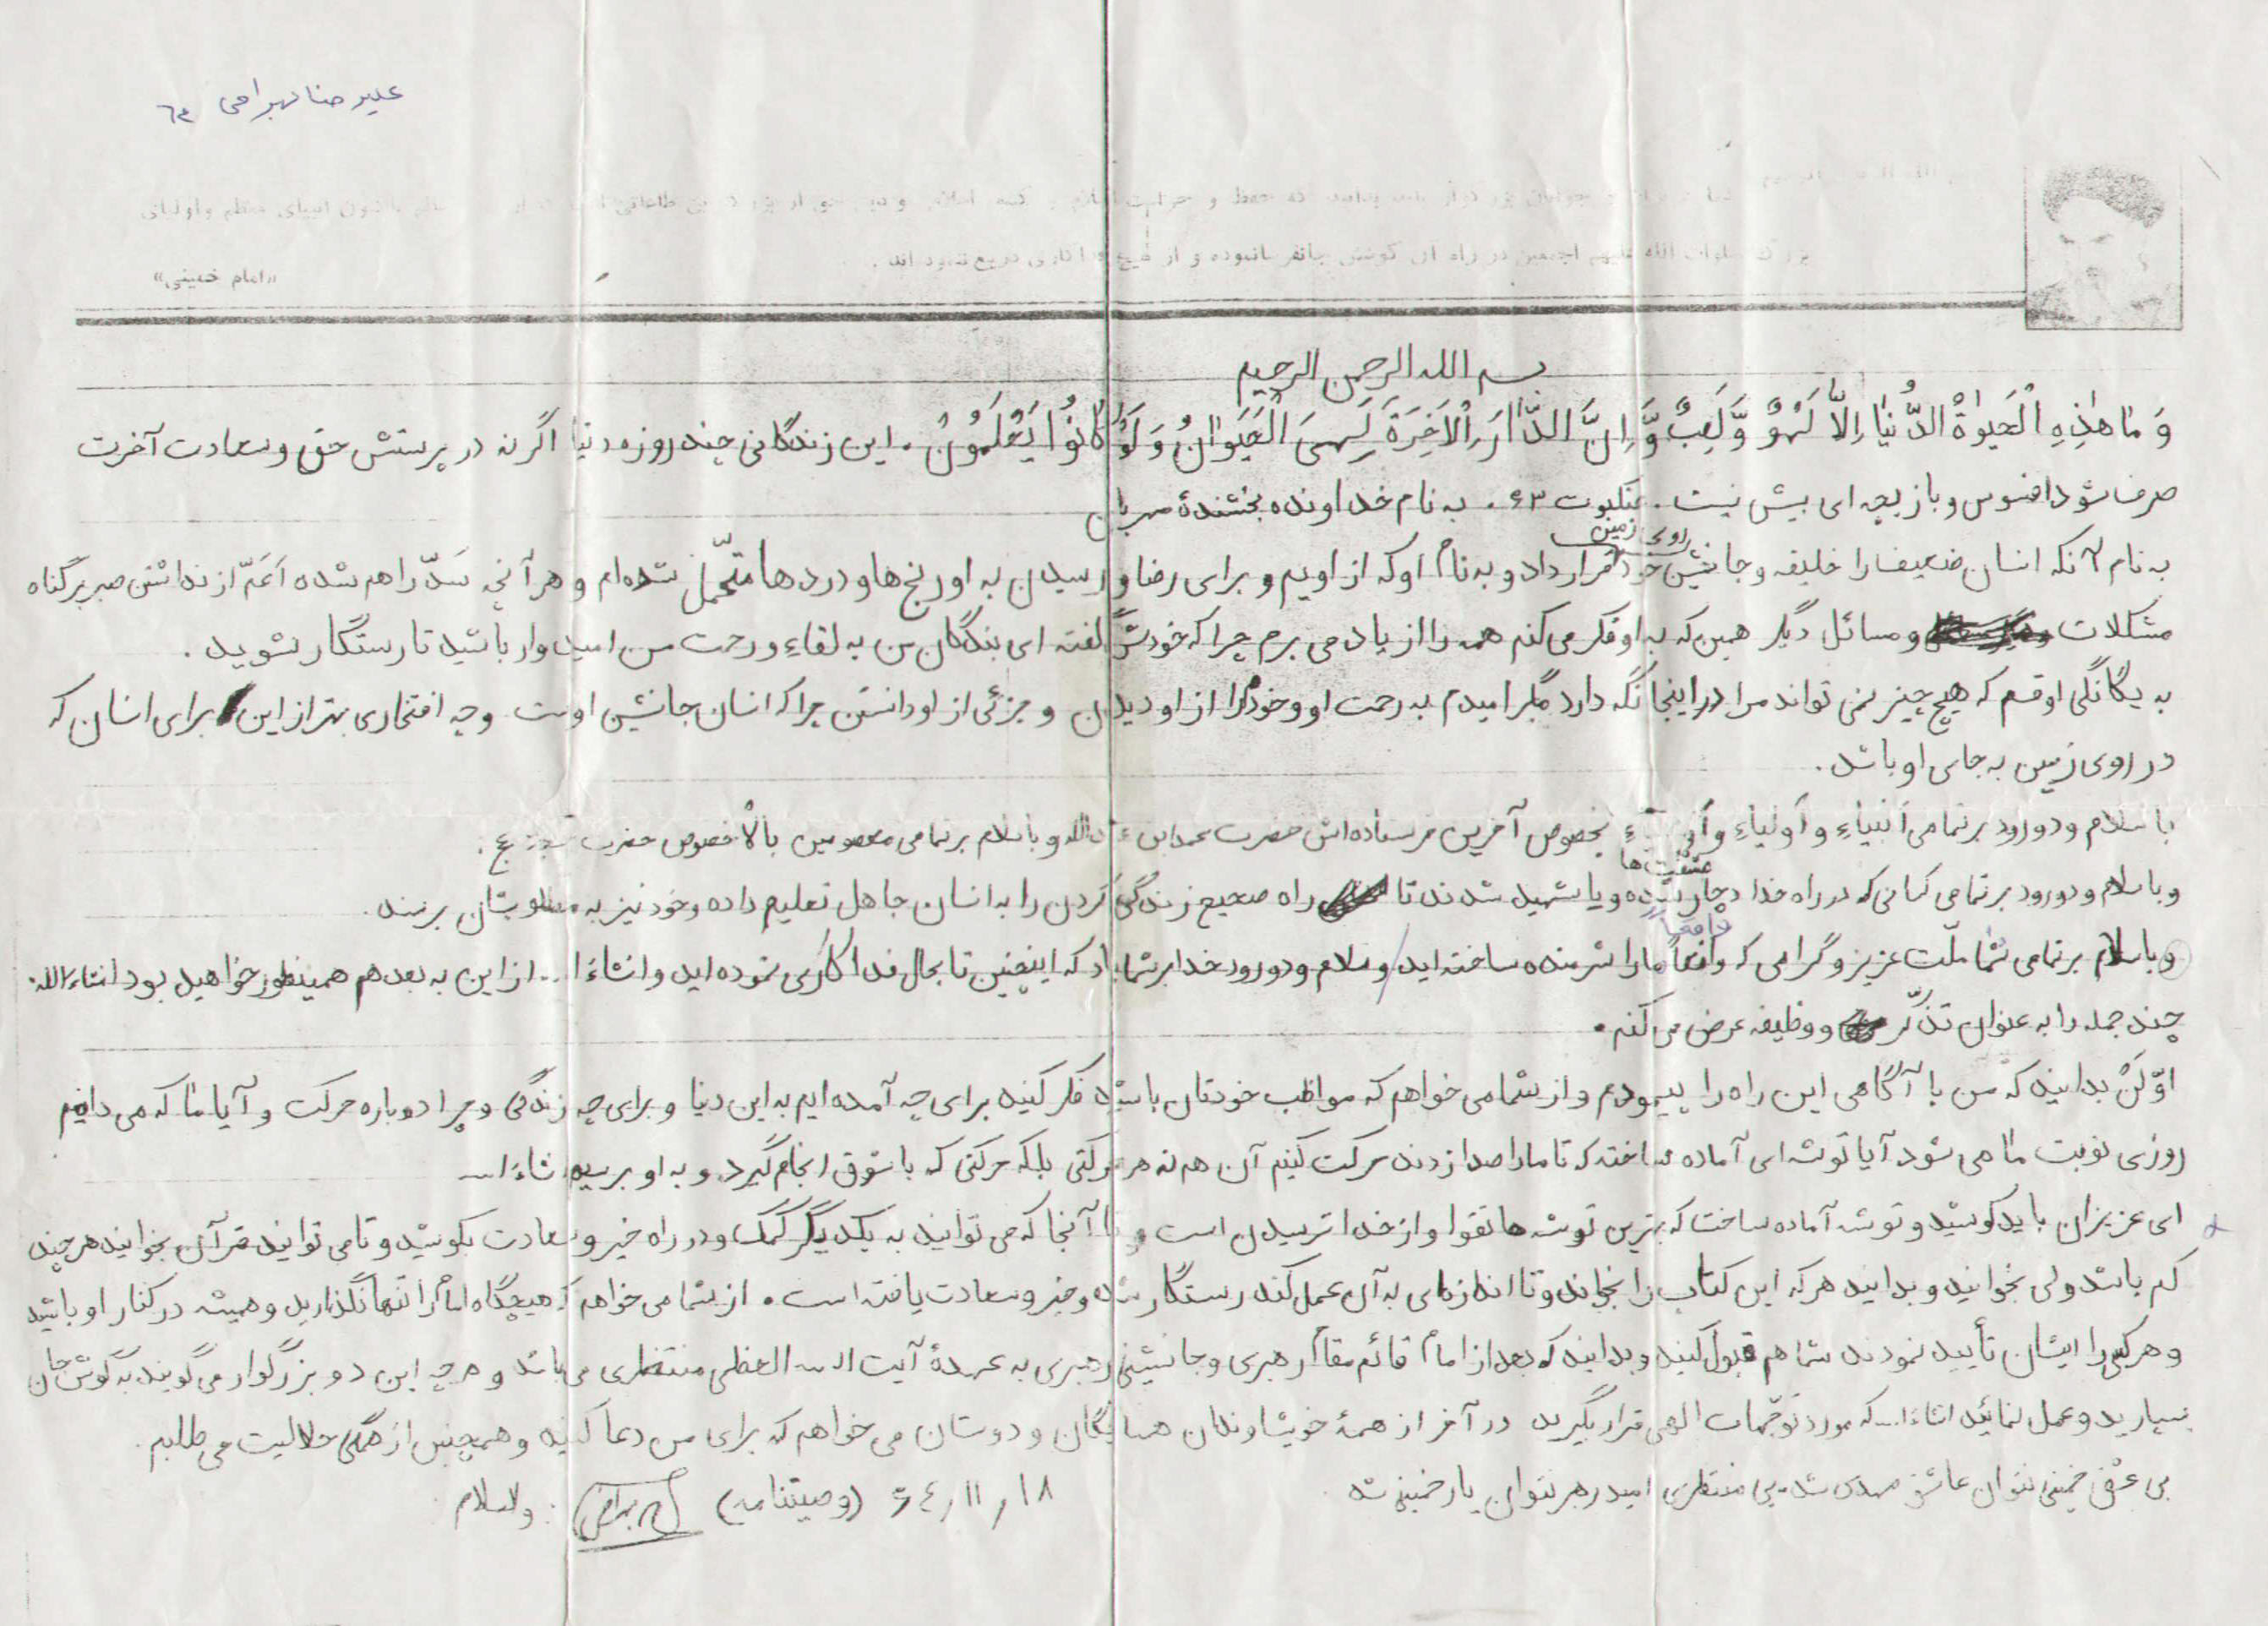 علیرضا بهرامی ٦٤
حفظ و حراست
صلوات الله علیهم اجمعین در راه آن کوشش جانفرسا نموده و از هیچ فداکاری دریغ ننموده‌اند.
«امام خمینی»
بسم الله الرحمن الرحیم
وَ مٰا هٰذِهِ الْحَیوٰةُ الدُّنْیٰا اِلاّٰ لَهْوٌ وَّ لَعِبٌ وَّ اِنَّ الدّٰارَ الْاٰخِرَةَ لَهِیَ الْحَیَوٰانُ وَ لَوْ کٰانُوا یَعْلَمُونُ. این زندگانی چند روزه دنیا اگر نه در پرستش حق و سعادت آخرت
صرف شود افسوس و بازیچه ای بیش نیست. عنکبوت ۶۳. به نام خداونده بخشندهٔ مهربان
به نام آنکه انسان ضعیف را خلیفه و جانشین خود روی زمین قرار داد و به نام او که از اویم و برای رضا و رسیدن به او رنج ها و درد ها متحّمل شده ام و هر آنچه سَدّ راهم شده اَعَمّ از نداشتن صبر بر گناه
مشکلات و مسائل دیگر همین که به او فکر می کنم همه را از یاد می برم چرا که خودش گفته ای بندگان من به لقاءِ و رحمت من امیدوار باشید تا رستگار شوید.
به یگانگی او قسم که هیچ چیز نمی تواند مرا در اینجا نگه دارد مگر امیدم به رحمت او و خود را از او دیدن و جزئی از او دانستن چرا که انسان جانشین اوست و چه افتخاری بهتر از این برای انسان که
در روی زمین به جای او باشد.
با سلام و دورود بر تمامی اَنبیاءِ و اَولیاءِ و بخصوص آخرین فرستاده اش حضرت محمد ابن عبدالله و با سلام بر تمامی معصومین بالْاخصوص حضرت حجت عج.
و با سلام و دورود بر تمامی کسانی که در راه خدا دچار مشقّت ها شده و یا شهید شدند تا راه صحیح زندگی کردن را به انسان جاهل تعلیم داده و خود نیز به مطلوبشان برسند.
و با سلام بر تمامی شما ملّت عزیز و گرامی که واقعاً ما را شرمنده ساخته اید و سلام و دورود خدا بر شما باد که اینچنین تا بحال فداکاری نموده اید و انشاءا... از این به بعد هم همینطور خواهید بود انشاءالله
چند جمله را به عنوان تذکّر و وظیفه عرض می کنم.
اوّلَنْ بدانید که من با آگاهی این راه را پیمودم و از شما می خواهم که مواظب خودتان باشید فکر کنید برای چه آمده ایم به این دنیا و برای چه زندگی و چرا دوباره حرکت و آیا ما که می دانیم
روزی نوبت ما می شود آیا توشه ای آماده ساخته که تا ما را صدا زدند حرکت کنیم آن هم نه هر حرکتی بلکه حرکتی که با شوق انجام گیرد و به او برسیم انشاءا...
ای عزیزان باید کوشید و توشه آماده ساخت که بهترین توشه ها تقوا و از خدا ترسیدن است و تا آنجا که می توانید به یکدیگر کمک و در راه خیر و سعادت بکوشید و تا می توانید قرآن بخوانید هر چند
کم باشد ولی بخوانید و بدانید هر که این کتاب را بخواند و تا اندازه ای به آن عمل کند رستگار شده و خیر و سعادت یافته است. از شما می خواهم که هیچگاه امام را تنها نگذارید و همیشه در کنار او باشید
و هر کس را ایشان تأیید نمودند شما هم قبول کنید و بدانید که بعد از امام قائم مقام رهبری و جانشینی رهبری به عهدهٔ آیت الله العظمی منتظری می باشد و هر چه این دو بزرگوار می گویند به گوش جان
بسپارید و عمل نمائید انشاءا... که مورد توجّهات الهی قرار بگیرید در آخر از همهٔ خویشاوندان همسایگان و دوستان می خواهم که برای من دعا کنید و همچنین از همگی حلالیت می طلبم.
بی عشق خمینی نتوان عاشق مهدی شد بی منتظری امید رهبر نتوان یار خمینی شد
٦٤/١١/١٨ (وصیتنامه) بهرامی: والسلام